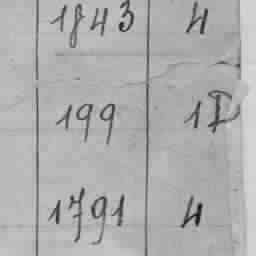 1843 4
199 1D
1791 4